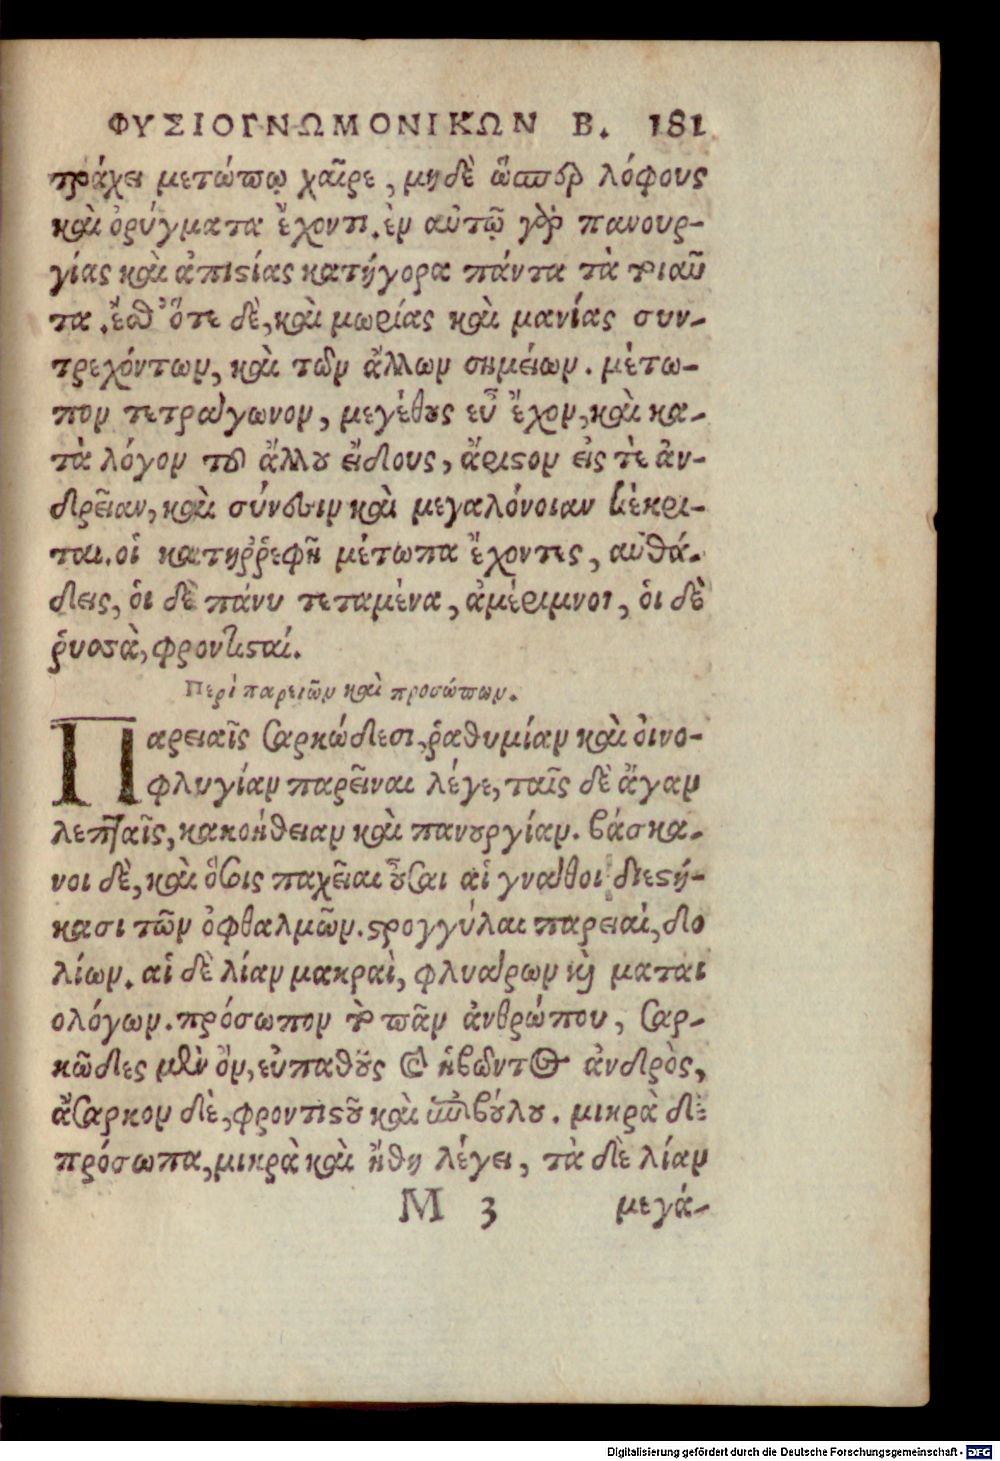 ΦΥΣΙΟΓΝΩΜΟΝΙΚΩΝ Β. 181
τράχει μετώπῳ χαῖρε, μηδὲ ὥσπερ λόφους
καὶ ὀρύγματα ἔχοντι. ἐν αὐτῷ γὰρ πανουρ-
γίας καὶ ἀπιστίας κατήγορα πάντα τὰ τοιαῦ
τα. ἔσθ' ὅτε δὲ, καὶ μωρίας καὶ μανίας συν-
τρεχόντων, καὶ τῶν ἄλλων σημείων. μέτω-
πον τετράγωνον, μεγέθους εὖ ἔχον, καὶ κα-
τὰ λόγον τοῦ ἄλλου εἴδους, ἄριστον εἰς τε ἀν-
δρεῖαν, καὶ σύνεσιν καὶ μεγαλόνοιαν κέκρι-
ται. οἱ κατηῤῥεφῆ μέτωπα ἔχοντες, αὐθά-
δεις, ὁι δὲ πάνυ τεταμένα, ἀμέριμνοι, ὁι δὲ
ῥυοστὰ, φροντισταί.
Περὶ παρειῶν καὶ προσώπων.
Παρειαῖς σαρκώδεσι, ῥαθυμίαν καὶ ὀινο-
φλυγίαν παρεῖναι λέγε, ταῖς δὲ ἄγαν
λεπταῖς, κακοήθειαν καὶ πανουργίαν. βάσκα-
νοι δὲ, καὶ ὅσοις παχεῖαι οὖσαι αἱ γνάθοι διεστή-
κασι τῶν ὀφθαλμῶν. στρογγύλαι παρειαὶ, δο
λίων. αἱ δὲ λίαν μακραὶ, φλυάρων καὶ μαται
ολόγων. πρόσωπον τὸ πᾶν ἀνθρώπου, σαρ-
κῶδες μὲν ὂν, εὐπαθοῦς καὶ ἡβῶντος ἀνδρὸς,
ἄσαρκον δὲ, φροντιστοῦ καὶ ἐπιβούλου. μικρὰ δὲ
πρόσωπα, μικρὰ καὶ ἤθη λέγει, τὰ δὲ λίαν
M 3 μεγά-
Digitalisierung gefördert durch die Deutsche Forschungsgemeinschaft - DFG